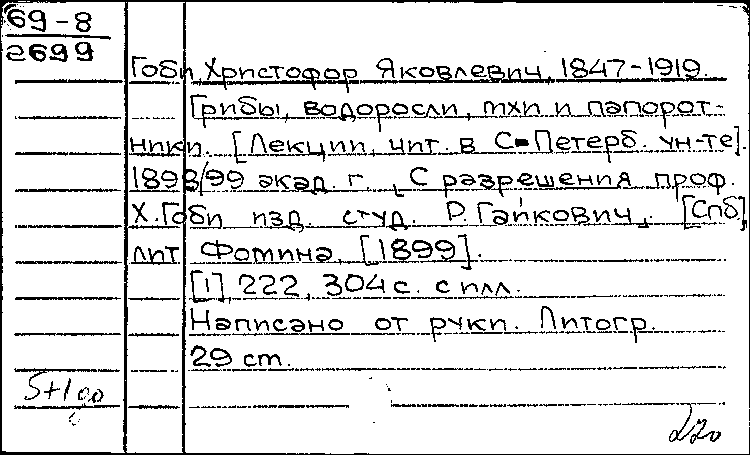 69-8
2699
Гоби, Христофор Яковлевич, 1847-1919.
Грибы, водоросли, мхи и папорот-
ники. [Лекции, чит. в С-Петерб. ун-те].
1898/99 акад. г. „С разрешения проф.
Х. Гоби изд. студ. Р. Гайкович„. [Спб],
лит Фомина, [1899].
[1], 222, 304 с. с илл.
Написано от руки. Литогр.
29 см.
5+1
220